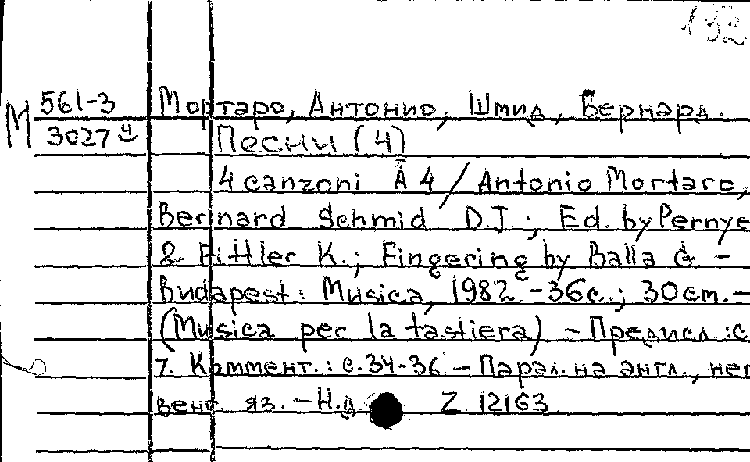 132
М 561-3
3027 ч
Мортаро, Антонио, Шмид, Бернард.
Песни (4)
4 canzoni À 4 / Antonio Mortaro,
Bernard Schmid D.J.; Ed. by Pernye
& Pittler K.; Fingering by Balla G -
Budapest: Musica, 1982 - 36с.; 30 cm. -
(Musica per la tastiera) - Предисл.: с.
7. Коммент.: с.34-36 - Парал. на англ., нем
венг яз. - Н.д Z 12163